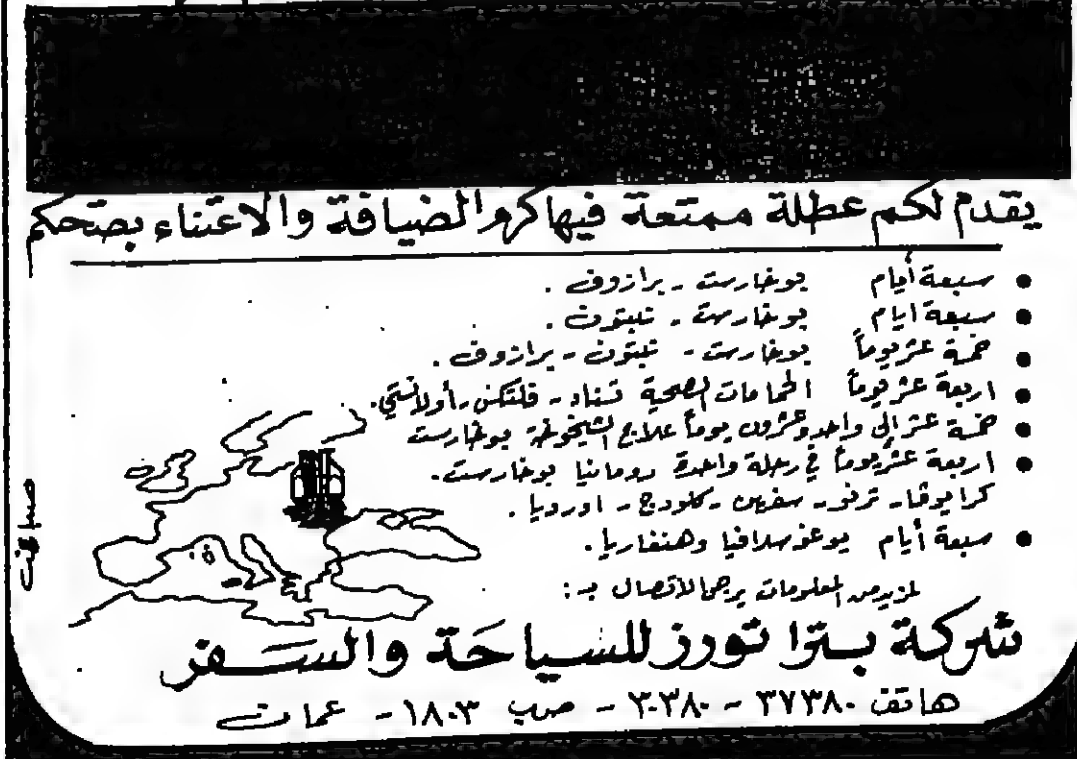 يقدم لكم عطلة ممتعة فيها كرم الضيافة والاعتناء بصحتكم
• سبعة أيام بوخارست - برازوف .
• سبعة ايام بوخارست - نبتون .
• خمسة عشر يوماً بوخارست - نبتون - برازوف .
• اربعة عشر يوماً الحمامات الصحية
• خمسة عشر الى واحد وعشرون يوماً علاج الشيخوخة بوخارست
• اربعة عشر يوماً في رحلة واحدة رومانيا بوخارست.
كرايوفا - - كلودج - اورديا .
• سبعة أيام يوغوسلافيا وهنغاريا.
لمزيد من المعلومات يرجى الاتصال بـ :
شركة بترا تورز للسياحة والسفر
هاتف ٣٧٣٨٠ - ٣٠٣٨٠ - ص ب ١٨٠٣ - عمان